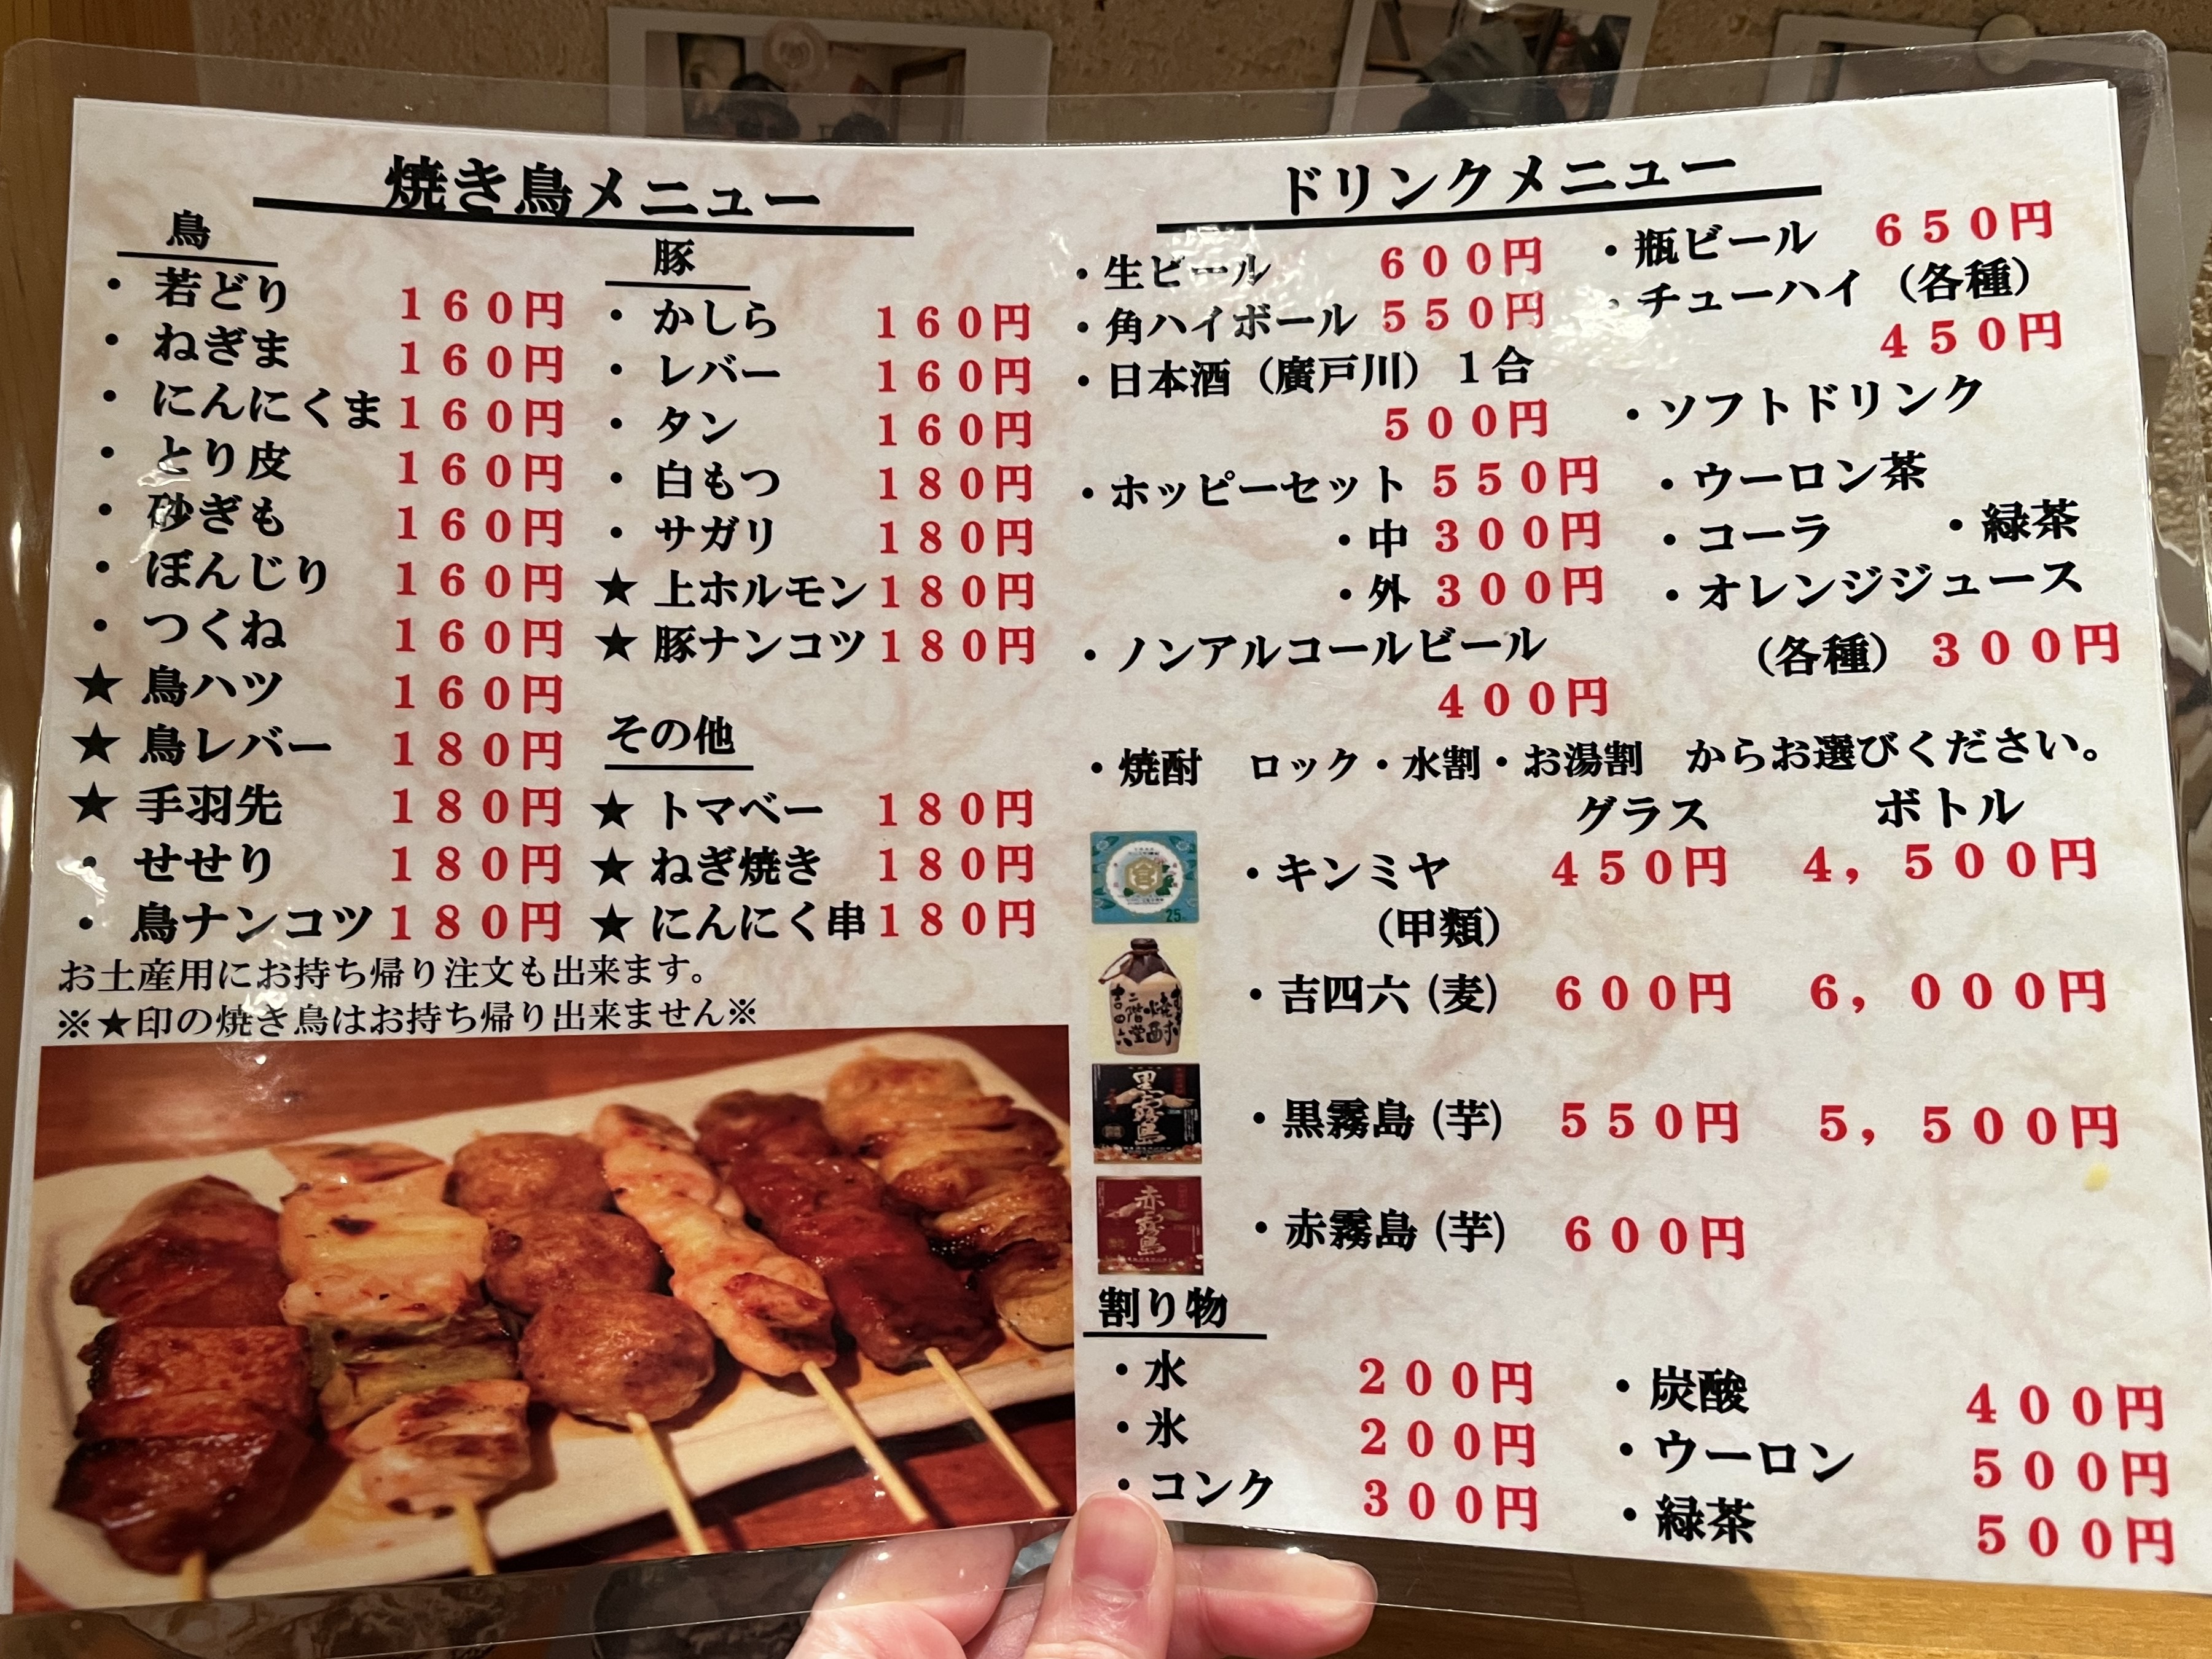 焼き鳥メニュー
鳥
・若どり 160円
・ねぎま 160円
・にんにくま 160円
・とり皮 160円
・砂ぎも 160円
・ぼんじり 160円
・つくね 160円
★ 鳥ハツ 160円
★ 鳥レバー 180円
★ 手羽先 180円
・せせり 180円
・鳥ナンコツ 180円
豚
・かしら 160円
・レバー 160円
・タン 160円
・白もつ 180円
・サガリ 180円
★ 上ホルモン 180円
★ 豚ナンコツ 180円
その他
★ トマベー 180円
★ ねぎ焼き 180円
★ にんにく串 180円
お土産用にお持ち帰り注文も出来ます。
※★印の焼き鳥はお持ち帰り出来ません※
ドリンクメニュー
・生ビール 600円
・角ハイボール 550円
・日本酒（廣戸川）１合
500円
・ホッピーセット 550円
・中 300円
・外 300円
・ノンアルコールビール
400円
・瓶ビール 650円
・チューハイ（各種）
450円
・ソフトドリンク
・ウーロン茶
・コーラ ・緑茶
・オレンジジュース
（各種） 300円
・焼酎 ロック・水割・お湯割 からお選びください。
グラス ボトル
・キンミヤ 450円 4，500円
（甲類）
25
・吉四六 (麦) 600円 6，000円
吉四六
二階堂
焼酎
・黒霧島 (芋) 550円 5，500円
黒霧島
・赤霧島 (芋) 600円
赤霧島
割り物
・水 200円
・氷 200円
・コンク 300円
・炭酸 400円
・ウーロン 500円
・緑茶 500円